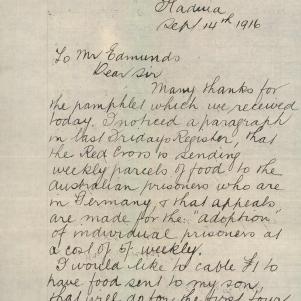 Kadina
Sept 14th 1916
To Mr Edmunds
Dear Sir
Many thanks for
the pamphlet which we received
today. I noticed a paragraph
in last Fridays Register, that
the Red Cross is sending
weekly parcels of food to the
Australian prisoners who are
in Germany, & that appeals
are made for the "adoption"
of individual prisoners at
a cost of weekly.
I would like to cable £1 to
have food sent to my son,
that will do for the first four